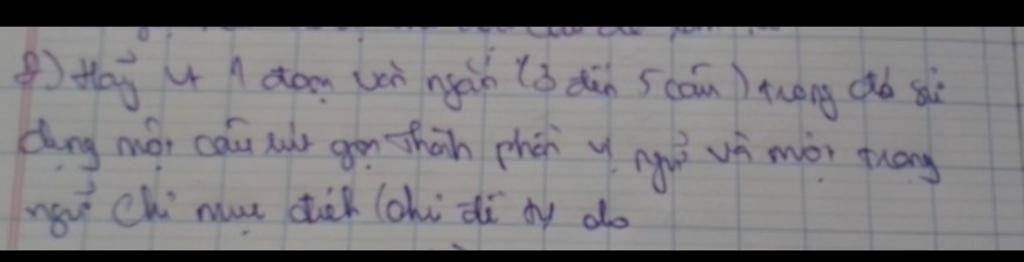 8) Hãy vt 1 đoạn văn ngắn (3 đến 5 câu) trong đó sử
dụng một câu rút gọn thành phần vị ngữ và một trạng
ngữ chỉ mục đích (chủ đề tự do